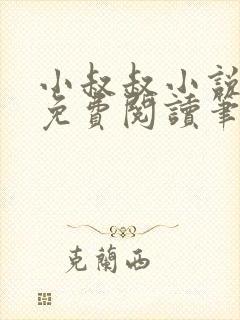 小叔叔小說
免費閱讀筆
克蘭西